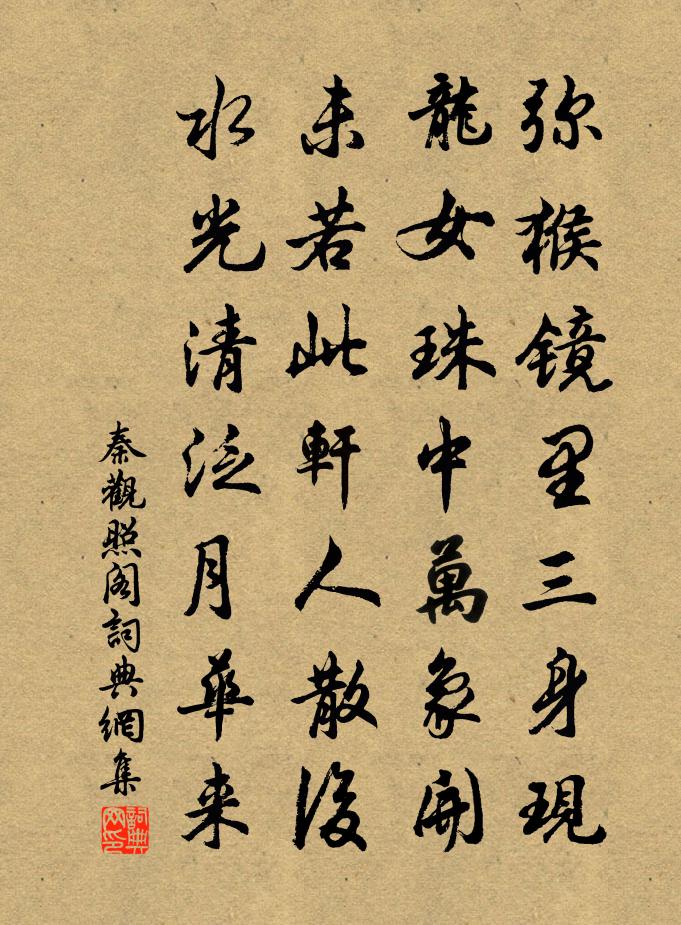 弥猴镜里三身現
龍女珠中萬象開
未若此軒人散後
水光清泛月華来
秦觀照阁詞典網集
詞典网印